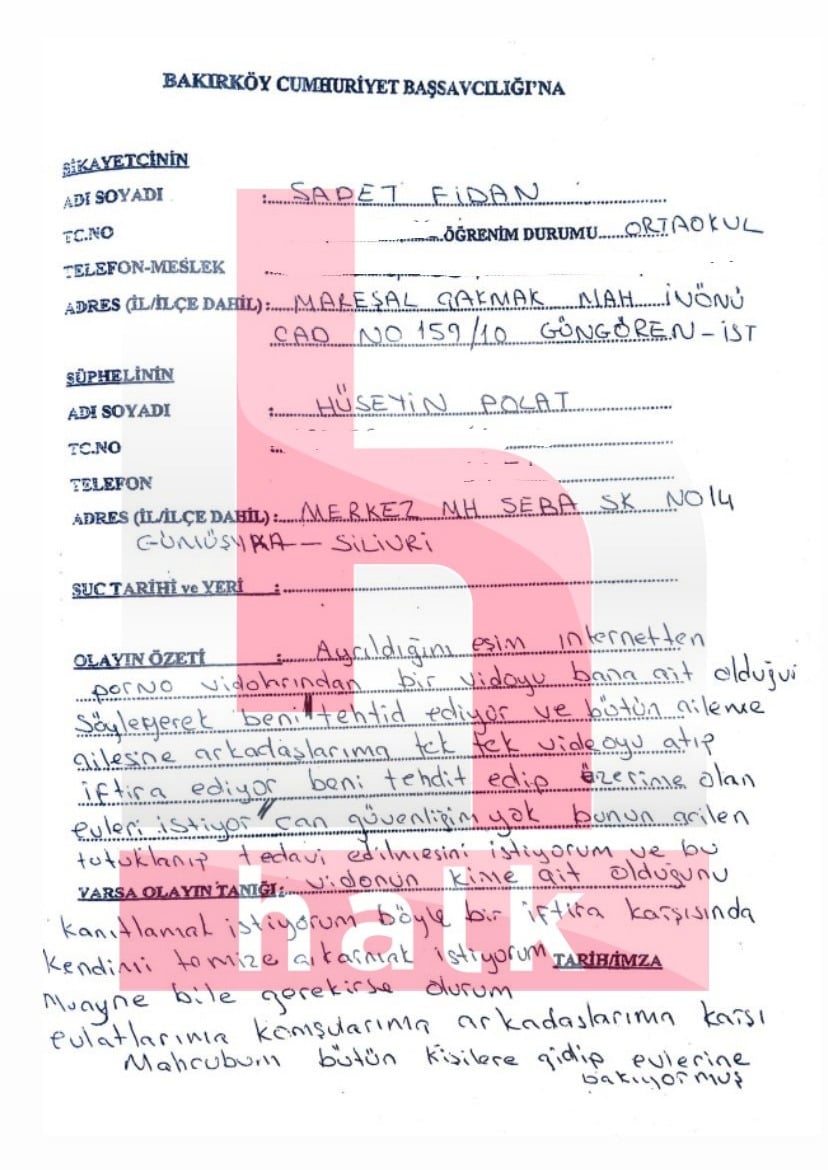 BAKIRKÖY CUMHURİYET BAŞSAVCILIĞI'NA
ŞİKAYETÇİNİN
ADI SOYADI : SADET FİDAN
TC.NO ÖĞRENİM DURUMU ORTAOKUL
TELEFON-MESLEK
ADRES (İL/İLÇE DAHİL): MAREŞAL ÇAKMAK MAH İNÖNÜ
CAD NO 159/10 GÜNGÖREN-İST
ŞÜPHELİNİN
ADI SOYADI : HÜSEYİN POLAT
TC.NO :
TELEFON
ADRES (İL/İLÇE DAHİL): MERKEZ MH SEBA SK NO 14
GÜMÜŞYAKA - SİLİVRİ
SUÇ TARİHİ ve YERİ :
OLAYIN ÖZETİ : Ayrıldığım eşim internetten
porno vidolarından bir vidoyu bana ait olduğui
söyleyerek beni tehtid ediyor ve bütün aileme
ailesine arkadaşlarıma tek tek videoyu atıp
iftira ediyor beni tehdit edip üzerime olan
evleri istiyor" can güvenliğim yok bunun acilen
tutuklanıp tedavi edilmesini istiyorum ve bu
VARSA OLAYIN TANIĞI: vidonun kime ait olduğunu
kanıtlamak istiyorum böyle bir iftira karşısında
kendimi temize çıkarmak istiyorum TARİH/İMZA
Muayne bile gerekirse olurum
evlatlarıma komşularıma arkadaşlarıma karşı
Mahcubum bütün kişilere gidip evlerine
bakıyormuş
h
halk